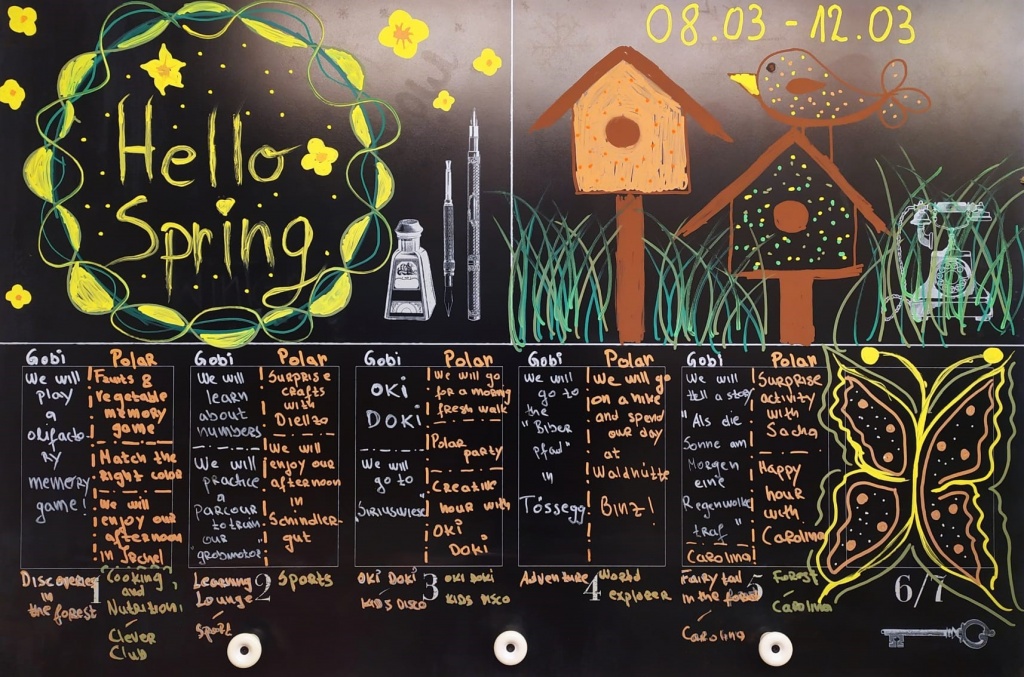 Hello
Spring
08.03 - 12.03
Gobi
We will
play
a
olifacto-
RY
memory
game!
Polar
Fruits &
Vegetable
memory
game
Match the
Right color
We will
enjoy our
afternoon
in
Discoveries
in
the forest
1
Cooking
and
Nutrition
Clever
Club
Gobi
We will
learn
about
numbers
We will
practice
a
Parcour
to train
our
"grobmotor"
Polar
Surprise
crafts
with
Diello
We will
enjoy our
afternoon
in
Schindler-
gut
Learning
Lounge
Sport
2
Sports
Gobi
OKI
DOKI
We will
go to
"Siriuswiese"
Polar
We will go
for a morning
fresh walk
Polar
party
Creative
hour with
OKI
Doki
OKI DOKI
KIDS DISCO
3
OKI DOKI
KIDS DISCO
Gobi
We will
go to
the
"Biber
pfad"
in
Tössegg
Polar
We will go
on a hike
and spend
our day
at
Waldhütte
Binz!
Adventure
4
World
explorer
Gobi
We will
tell a story
"Als die
Sonne am
Morgen
eine
Regenwolke
traf"
Carolina
Polar
Surprise
activity
with
Sacha
Happy
hour
with
Carolina
Fairy tail
in the forest
Carolina
5
Forest
Carolina
6/7